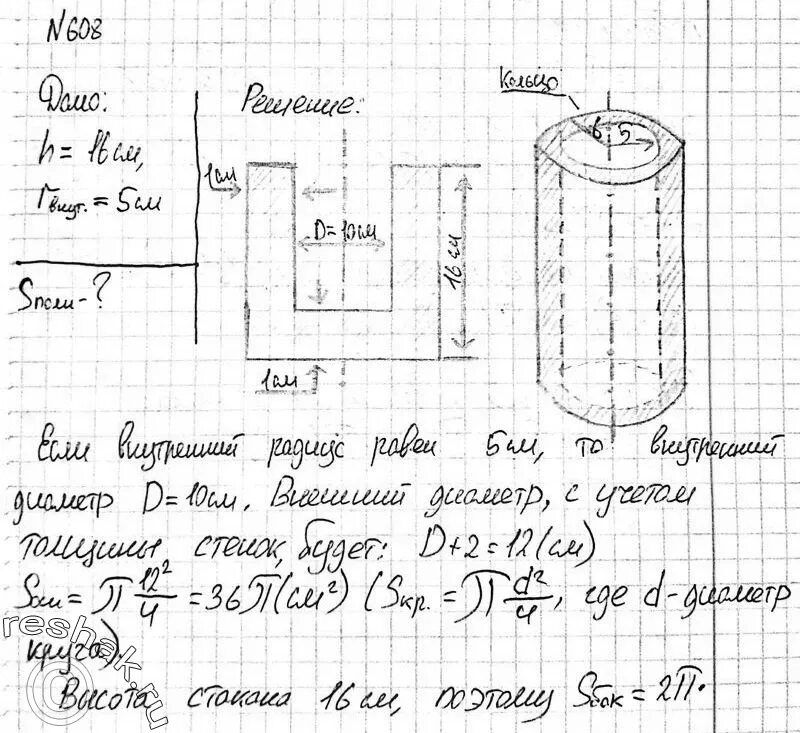 N608
Дано:
h = 16см,
rвнут. = 5см
Sполн - ?
Решение:
1см
D=10см
16 см
1см
Кольцо
6 5
Если внутренний радиус равен 5см, то внутренний
диаметр D=10см. Внешний диаметр, с учетом
толщины стенок, будет: D+2=12(см)
= π 12²/4 = 36π(см²) (Sкр. = π d²/4, где d-диаметр
круга).
Высота стакана 16см, поэтому Sбок = 2π·
reshak.ru